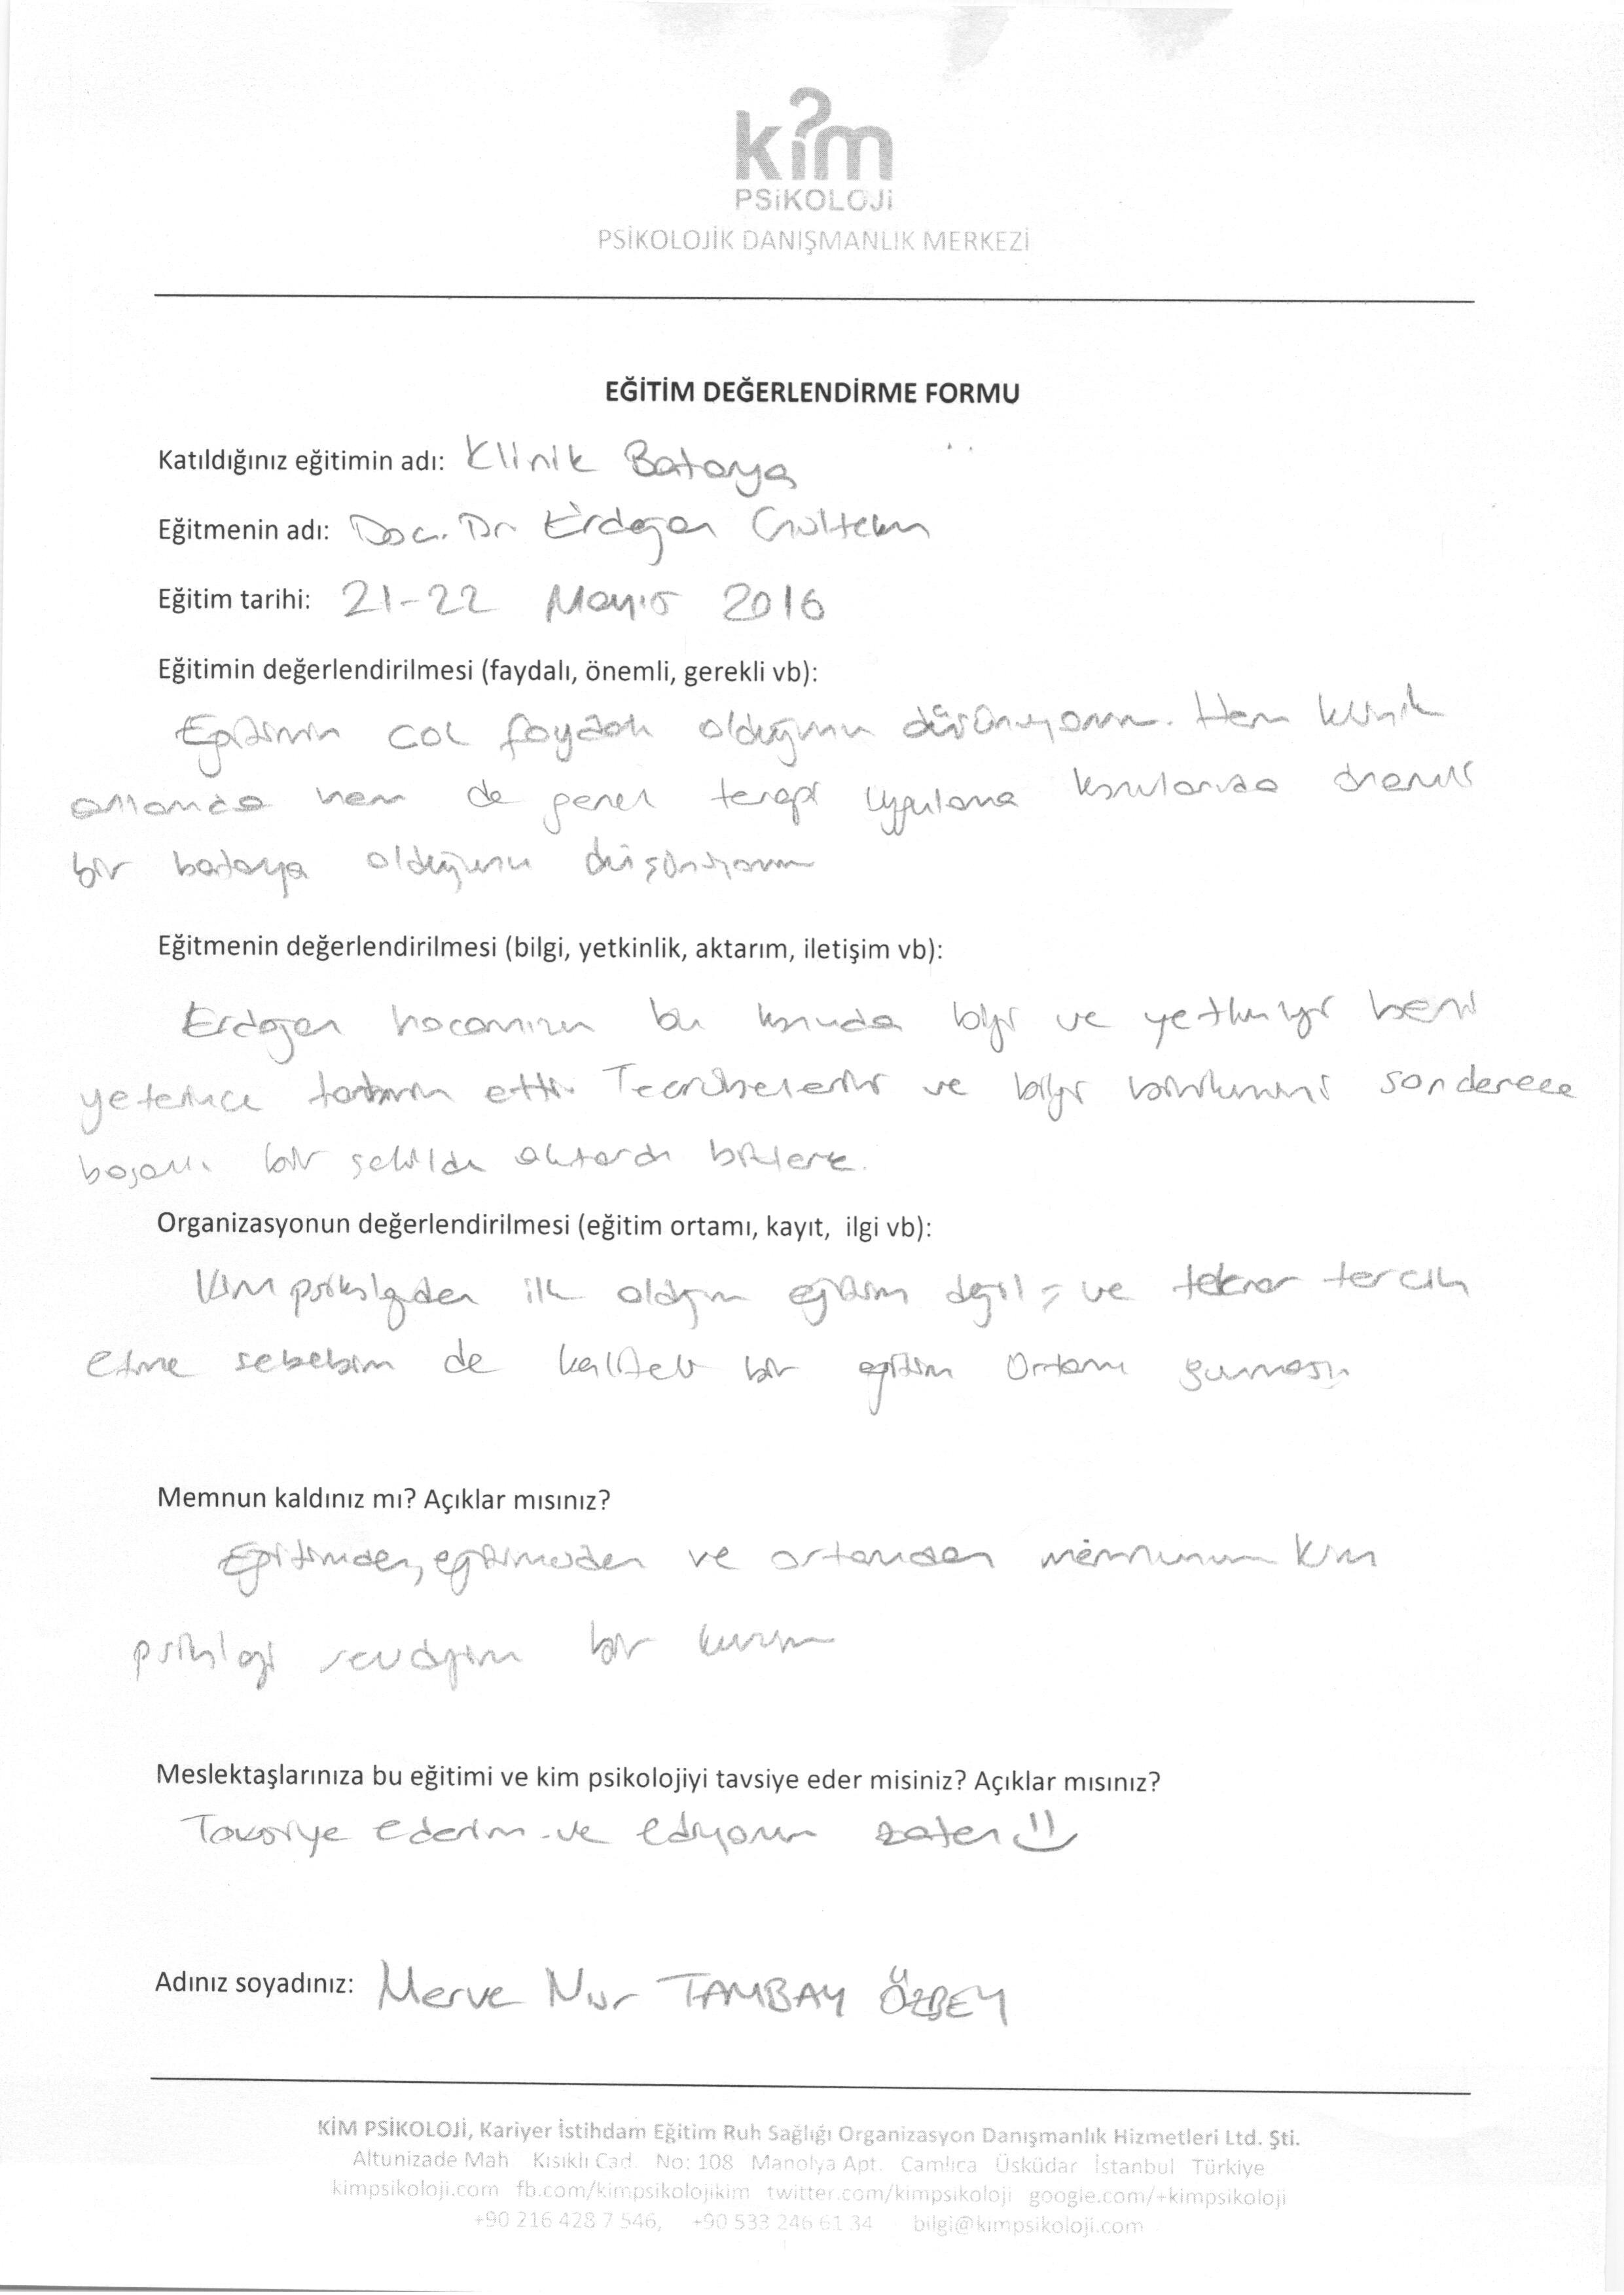 kim
PSiKOLOJi
PSİKOLOJİK DANIŞMANLIK MERKEZİ
EĞİTİM DEĞERLENDİRME FORMU
Katıldığınız eğitimin adı: Klinik Batarya
Eğitmenin adı: Doc. Dr Erdoğan Gültekin
Eğitim tarihi: 21-22 Mayıs 2016
Eğitimin değerlendirilmesi (faydalı, önemli, gerekli vb):
Eğitimin çok faydalı olduğunu düşünüyorum. Hem klinik
anlamda hem de genel terapi uygulama konularında önemli
bir batarya olduğunu düşünüyorum
Eğitmenin değerlendirilmesi (bilgi, yetkinlik, aktarım, iletişim vb):
Erdoğan hocamızın bu konuda bilgi ve yetkinliği beni
yeterince tatmin etti. Tecrübelerini ve bilgi birikimini sonderece
başarılı bir şekilde aktardı bizlere.
Organizasyonun değerlendirilmesi (eğitim ortamı, kayıt, ilgi vb):
Kim psikolojiden ilk aldığım eğitim değil ve tekrar tercih
etme sebebim de kaliteli bir eğitim ortamı sunması
Memnun kaldınız mı? Açıklar mısınız?
Eğitimden, eğitmenden ve ortamdan memnunum Kim
psikoloji sevdiğim bir kurum
Meslektaşlarınıza bu eğitimi ve kim psikolojiyi tavsiye eder misiniz? Açıklar mısınız?
Tavsiye ederim ve ediyorum zaten
Adınız soyadınız: Merve Nur TAMBAY ÖZBEY
KİM PSİKOLOJİ, Kariyer İstihdam Eğitim Ruh Sağlığı Organizasyon Danışmanlık Hizmetleri Ltd. Şti.
Altunizade Mah Kısıklı Cad. No: 108 Manolya Apt. Camlıca Üsküdar İstanbul Türkiye
kimpsikoloji.com fb.com/kimpsikolojikim twitter.com/kimpsikoloji google.com/+kimpsikoloji
+90 216 428 7 546, +90 533 246 61 34 bilgi@kimpsikoloji.com